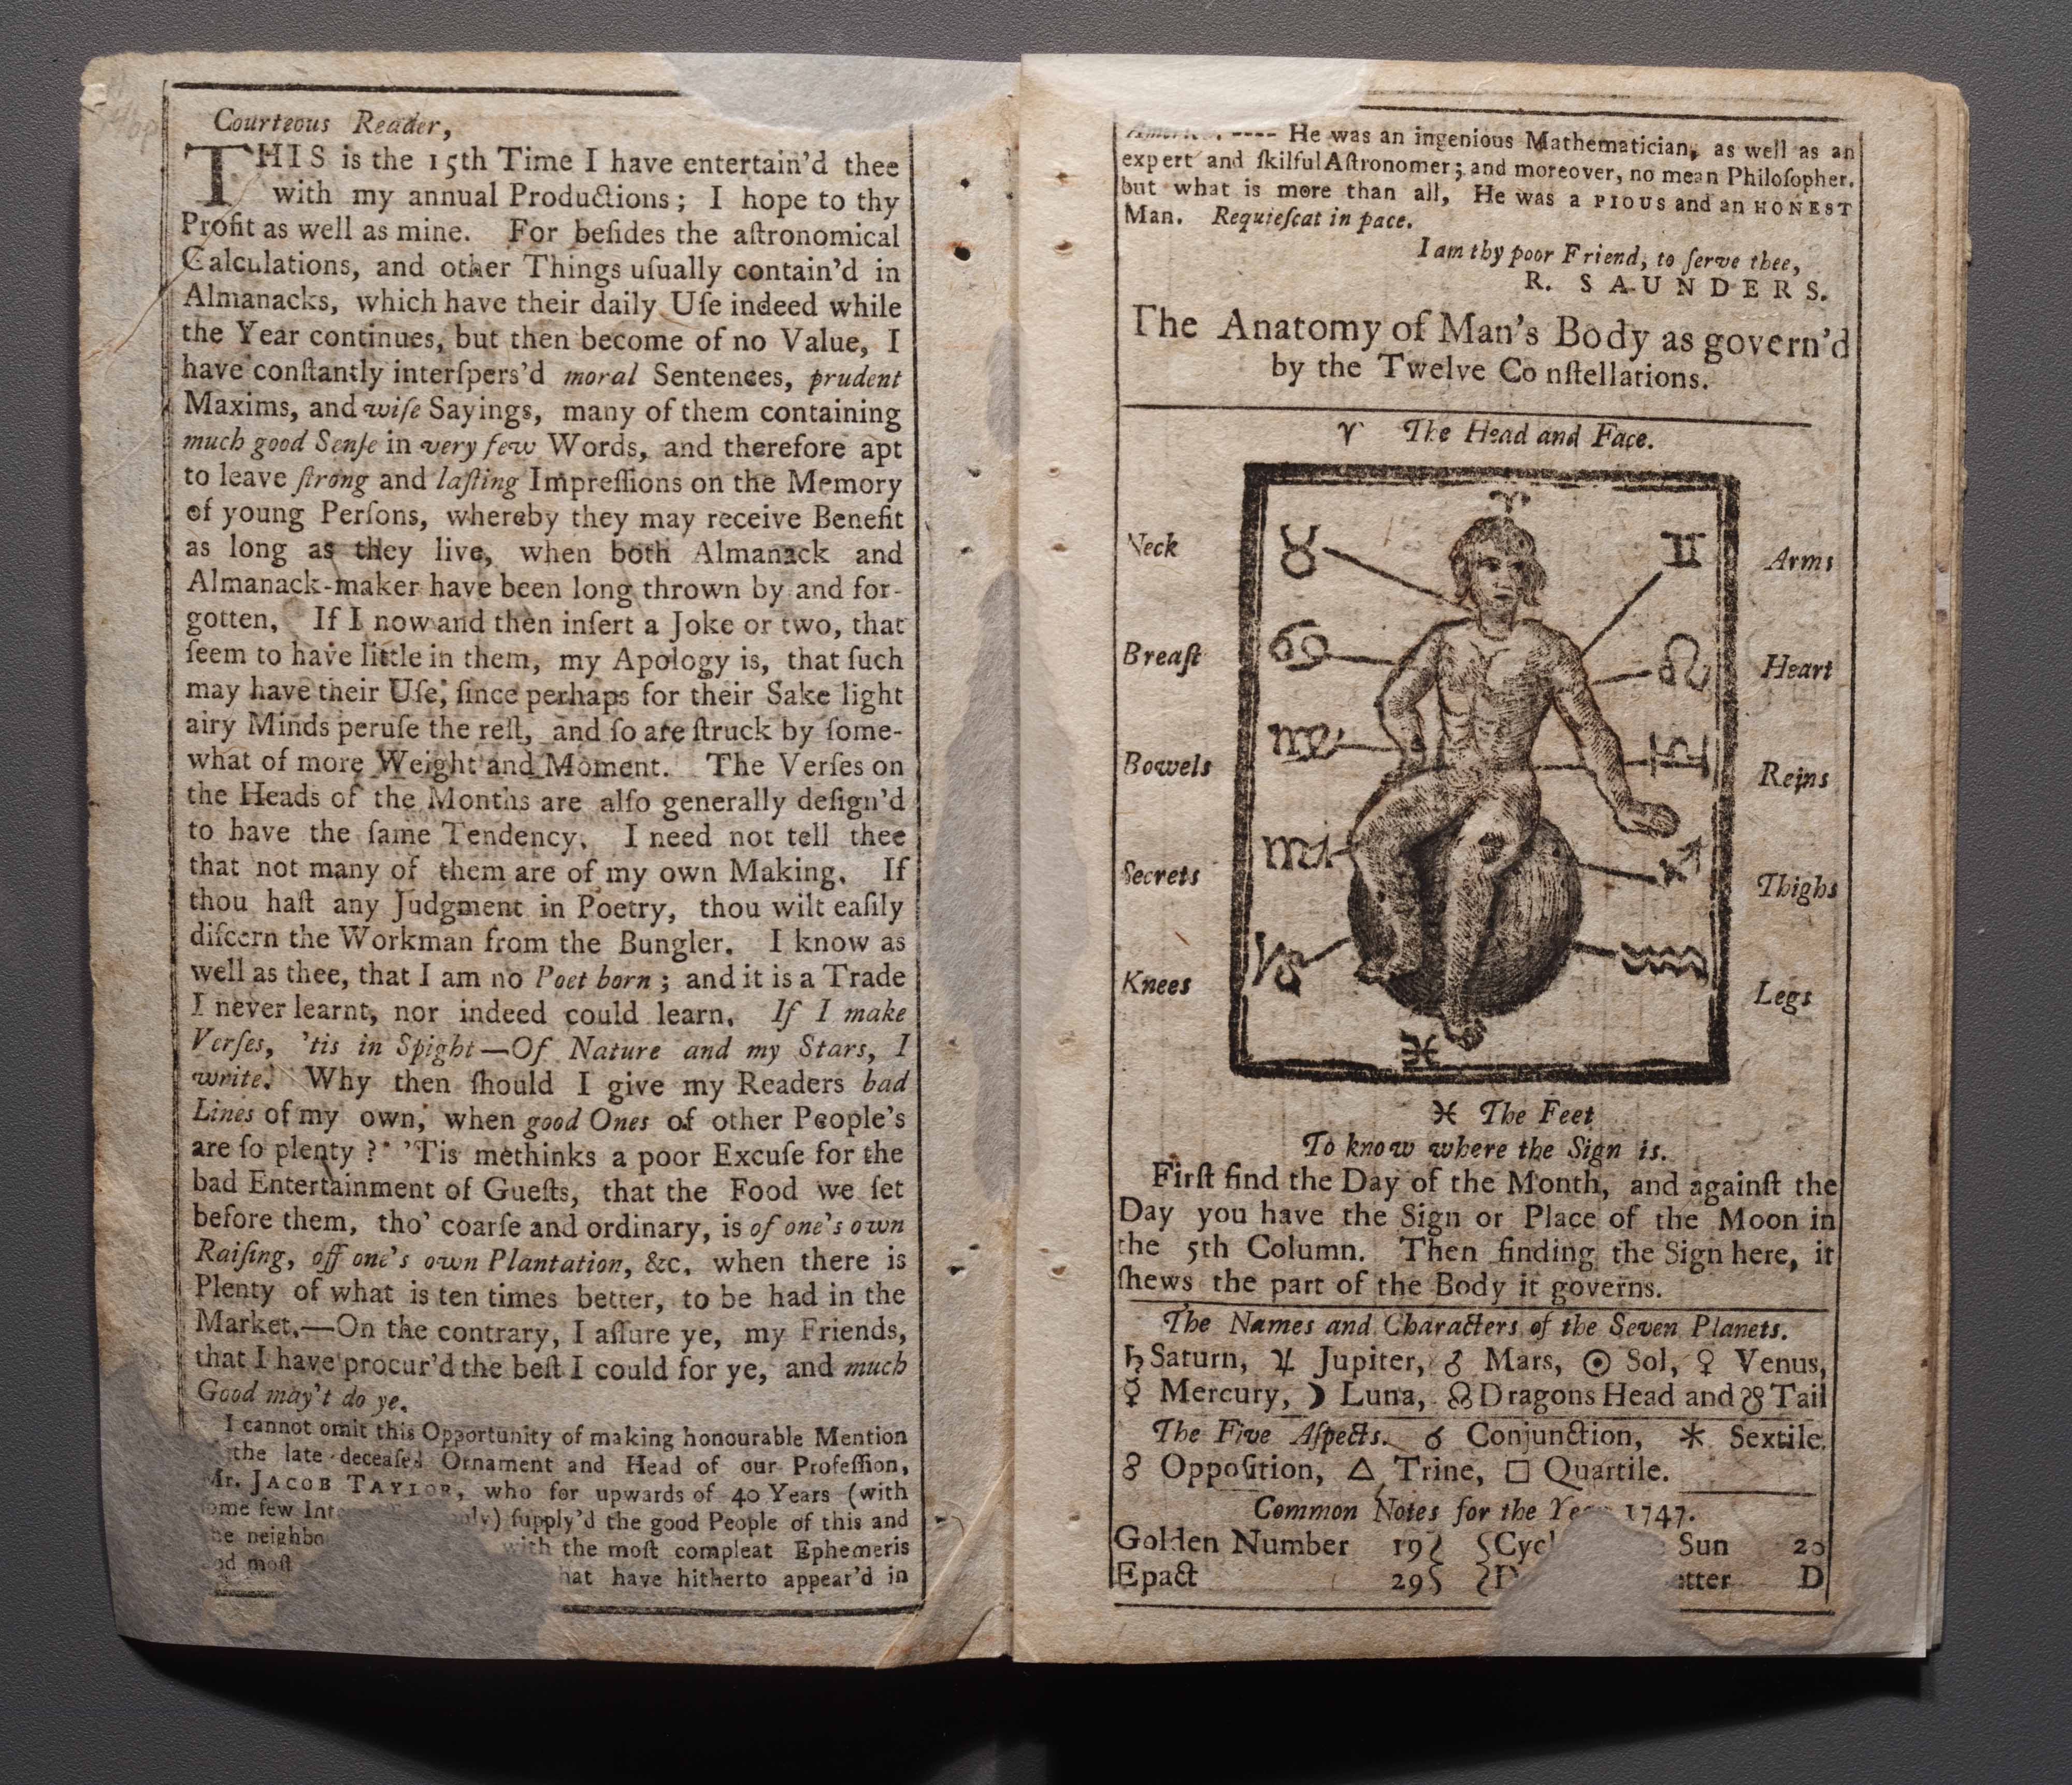 Courteous Reader,
THIS is the 15th Time I have entertain'd thee
with my annual Productions; I hope to thy
Profit as well as mine. For beſides the aſtronomical
Calculations, and other Things uſually contain'd in
Almanacks, which have their daily Uſe indeed while
the Year continues, but then become of no Value, I
have conſtantly interſpers'd moral Sentences, prudent
Maxims, and wiſe Sayings, many of them containing
much good Senſe in very few Words, and therefore apt
to leave ſtrong and laſting Impreſſions on the Memory
of young Perſons, whereby they may receive Benefit
as long as they live, when both Almanack and
Almanack-maker have been long thrown by and for-
gotten. If I now and then inſert a Joke or two, that
ſeem to have little in them, my Apology is, that ſuch
may have their Uſe, ſince perhaps for their Sake light
airy Minds peruſe the reſt, and ſo are ſtruck by ſome-
what of more Weight and Moment. The Verſes on
the Heads of the Months are alſo generally deſign'd
to have the ſame Tendency. I need not tell thee
that not many of them are of my own Making. If
thou haſt any Judgment in Poetry, thou wilt eaſily
diſcern the Workman from the Bungler. I know as
well as thee, that I am no Poet born; and it is a Trade
I never learnt, nor indeed could learn. If I make
Verſes, 'tis in Spight—Of Nature and my Stars, I
write. Why then ſhould I give my Readers bad
Lines of my own, when good Ones of other People's
are ſo plenty? 'Tis methinks a poor Excuſe for the
bad Entertainment of Gueſts, that the Food we ſet
before them, tho' coarſe and ordinary, is of one's own
Raiſing, off one's own Plantation, &c. when there is
Plenty of what is ten times better, to be had in the
Market.—On the contrary, I aſſure ye, my Friends,
that I have procur'd the beſt I could for ye, and much
Good may't do ye.
I cannot omit this Opportunity of making honourable Mention
the late deceaſed Ornament and Head of our Profeſſion,
Mr. JACOB TAYLOR, who for upwards of 40 Years (with
ſome few ſupply'd the good People of this and
with the moſt compleat Ephemeris
moſt have hitherto appear'd in
---- He was an ingenious Mathematician, as well as an
expert and ſkilful Aſtronomer; and moreover, no mean Philoſopher,
but what is more than all, He was a PIOUS and an HONEST
Man. Requieſcat in pace.
I am thy poor Friend, to ſerve thee,
R. SAUNDERS.
The Anatomy of Man's Body as govern'd
by the Twelve Conſtellations.
♈ The Head and Face.
♈
Neck ♉ ♊ Arms
Breaſt ♋ ♌ Heart
Bowels ♍ ♎ Reins
Secrets ♏ ♐ Thighs
Knees ♑ ♒ Legs
♓
♓ The Feet
To know where the Sign is.
Firſt find the Day of the Month, and againſt the
Day you have the Sign or Place of the Moon in
the 5th Column. Then finding the Sign here, it
ſhews the part of the Body it governs.
The Names and Characters of the Seven Planets.
♄ Saturn, ♃ Jupiter, ♂ Mars, ☉ Sol, ♀ Venus,
☿ Mercury, ☽ Luna, ☊ Dragons Head and ☋ Tail
The Five Aſpects. ☌ Conjunction, ⚹ Sextile,
☍ Oppoſition, △ Trine, □ Quartile.
Common Notes for the 1747.
Golden Number 19 Sun 20
Epact 29 D